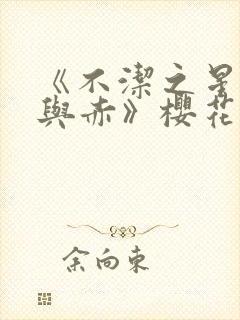 《不潔之星
與赤》櫻花
余向東